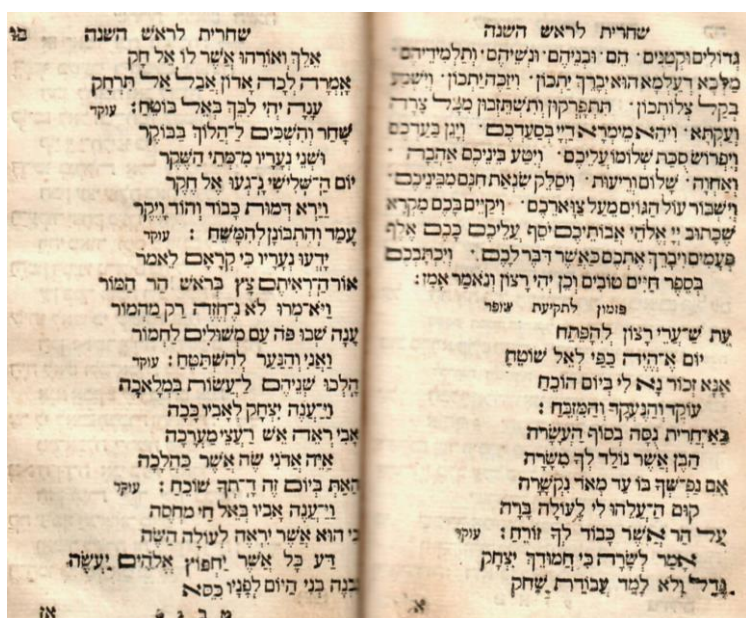 שחרית לראש השנה
גדולים וקטנים · הם · ובניהם · ונשיהם · ותלמידיהם ·
מלכא דעלמא הוא יברך יתכון · ויזכה יתכון · וישמע
בקל צלותכון · תתפרקון ותשתזבון מכל צרה
ועקתא · ויהא מימרא דיי בסעדכם · ויגן בעדכם
ויפרוש סכת שלומו עליכם · ויטע ביניכם אהבה ·
ואחוה · שלום וריעות · ויסלק שנאת חנם מביניכם
וישבור עול הגוים מעל צואריכם · ויקיים בכם מקרא
שכתוב יי אלהי אבותיכם יסף עליכם ככם אלף
פעמים ויברך אתכם כאשר דבר לכם · ויכתבכם
בספר חיים טובים וכן יהי רצון ונאמר אמן :
פזמון לתקיעת שופר
עת שערי רצון להפתח
יום אהיה כפי לאל שוטח
אנא זכור נא לי ביום הוכח
עוקד והנעקד והמזבח :
באחרית נסה בסוף העשרה
הבן אשר נולד לך משרה
אם נפשך בו עד מאד נקשרה
קום העלהו לי לעולה ברה
על הר אשר כבוד לך זורח : עוקד
אמר לשרה כי חמודך יצחק
גדל ולא למד עבודת שחק
שחרית לראש השנה
אלך ואורהו אשר לו אל חק
אמרה לכה אדון אבל אל תרחק
ענה יהי לבך באל בוטח : עוקד
שחר והשכים להלוך בבוקר
ושני נעריו ממתי השקר
יום השלישי נגעו אל חקר
וירא דמות כבוד והוד ויקר
עמד והתבונן להמשח : עוקד
ידעו נעריו כי קראם לאמר
אור הראיתם צץ בראש הר המור
ויאמרו לא נחזה רק מהמור
ענה שבו פה עם משולים לחמור
ואני והנער להשתטח : עוקד
הלכו שניהם לעשות במלאכה
ויענה יצחק לאביו ככה
אבי ראה אש ועצי מערכה
איה אדני שה אשר כהלכה
האת ביום זה דתך שוכח : עוקד
ויענה אביו באל חי מחסה
כי הוא אשר יראה לעולה השה
דע כל אשר יחפוץ אלהים יעשה
נבנה בני היום לפניו כסא
אז